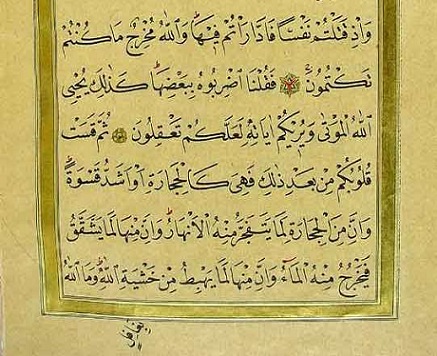 وَاِذْ قَتَلْتُمْ نَفْسًا فَادَّارَأْتُمْ فِيهَا وَاللّٰهُ مُخْرِجٌ مَا كُنْتُمْ
تَكْتُمُونَ فَقُلْنَا اضْرِبُوهُ بِبَعْضِهَا كَذٰلِكَ يُحْيِي
اللّٰهُ الْمَوْتٰى وَيُرِيكُمْ اٰيَاتِهِ لَعَلَّكُمْ تَعْقِلُونَ ثُمَّ قَسَتْ
قُلُوبُكُمْ مِنْ بَعْدِ ذٰلِكَ فَهِيَ كَالْحِجَارَةِ اَوْ اَشَدُّ قَسْوَةً
وَاِنَّ مِنَ الْحِجَارَةِ لَمَا يَتَفَجَّرُ مِنْهُ الْاَنْهَارُ وَاِنَّ مِنْهَا لَمَا يَشَّقَّقُ
فَيَخْرُجُ مِنْهُ الْمَاۤءُ وَاِنَّ مِنْهَا لَمَا يَهْبِطُ مِنْ خَشْيَةِ اللّٰهِ وَمَا اللّٰهُ
بِغَافِلٍ